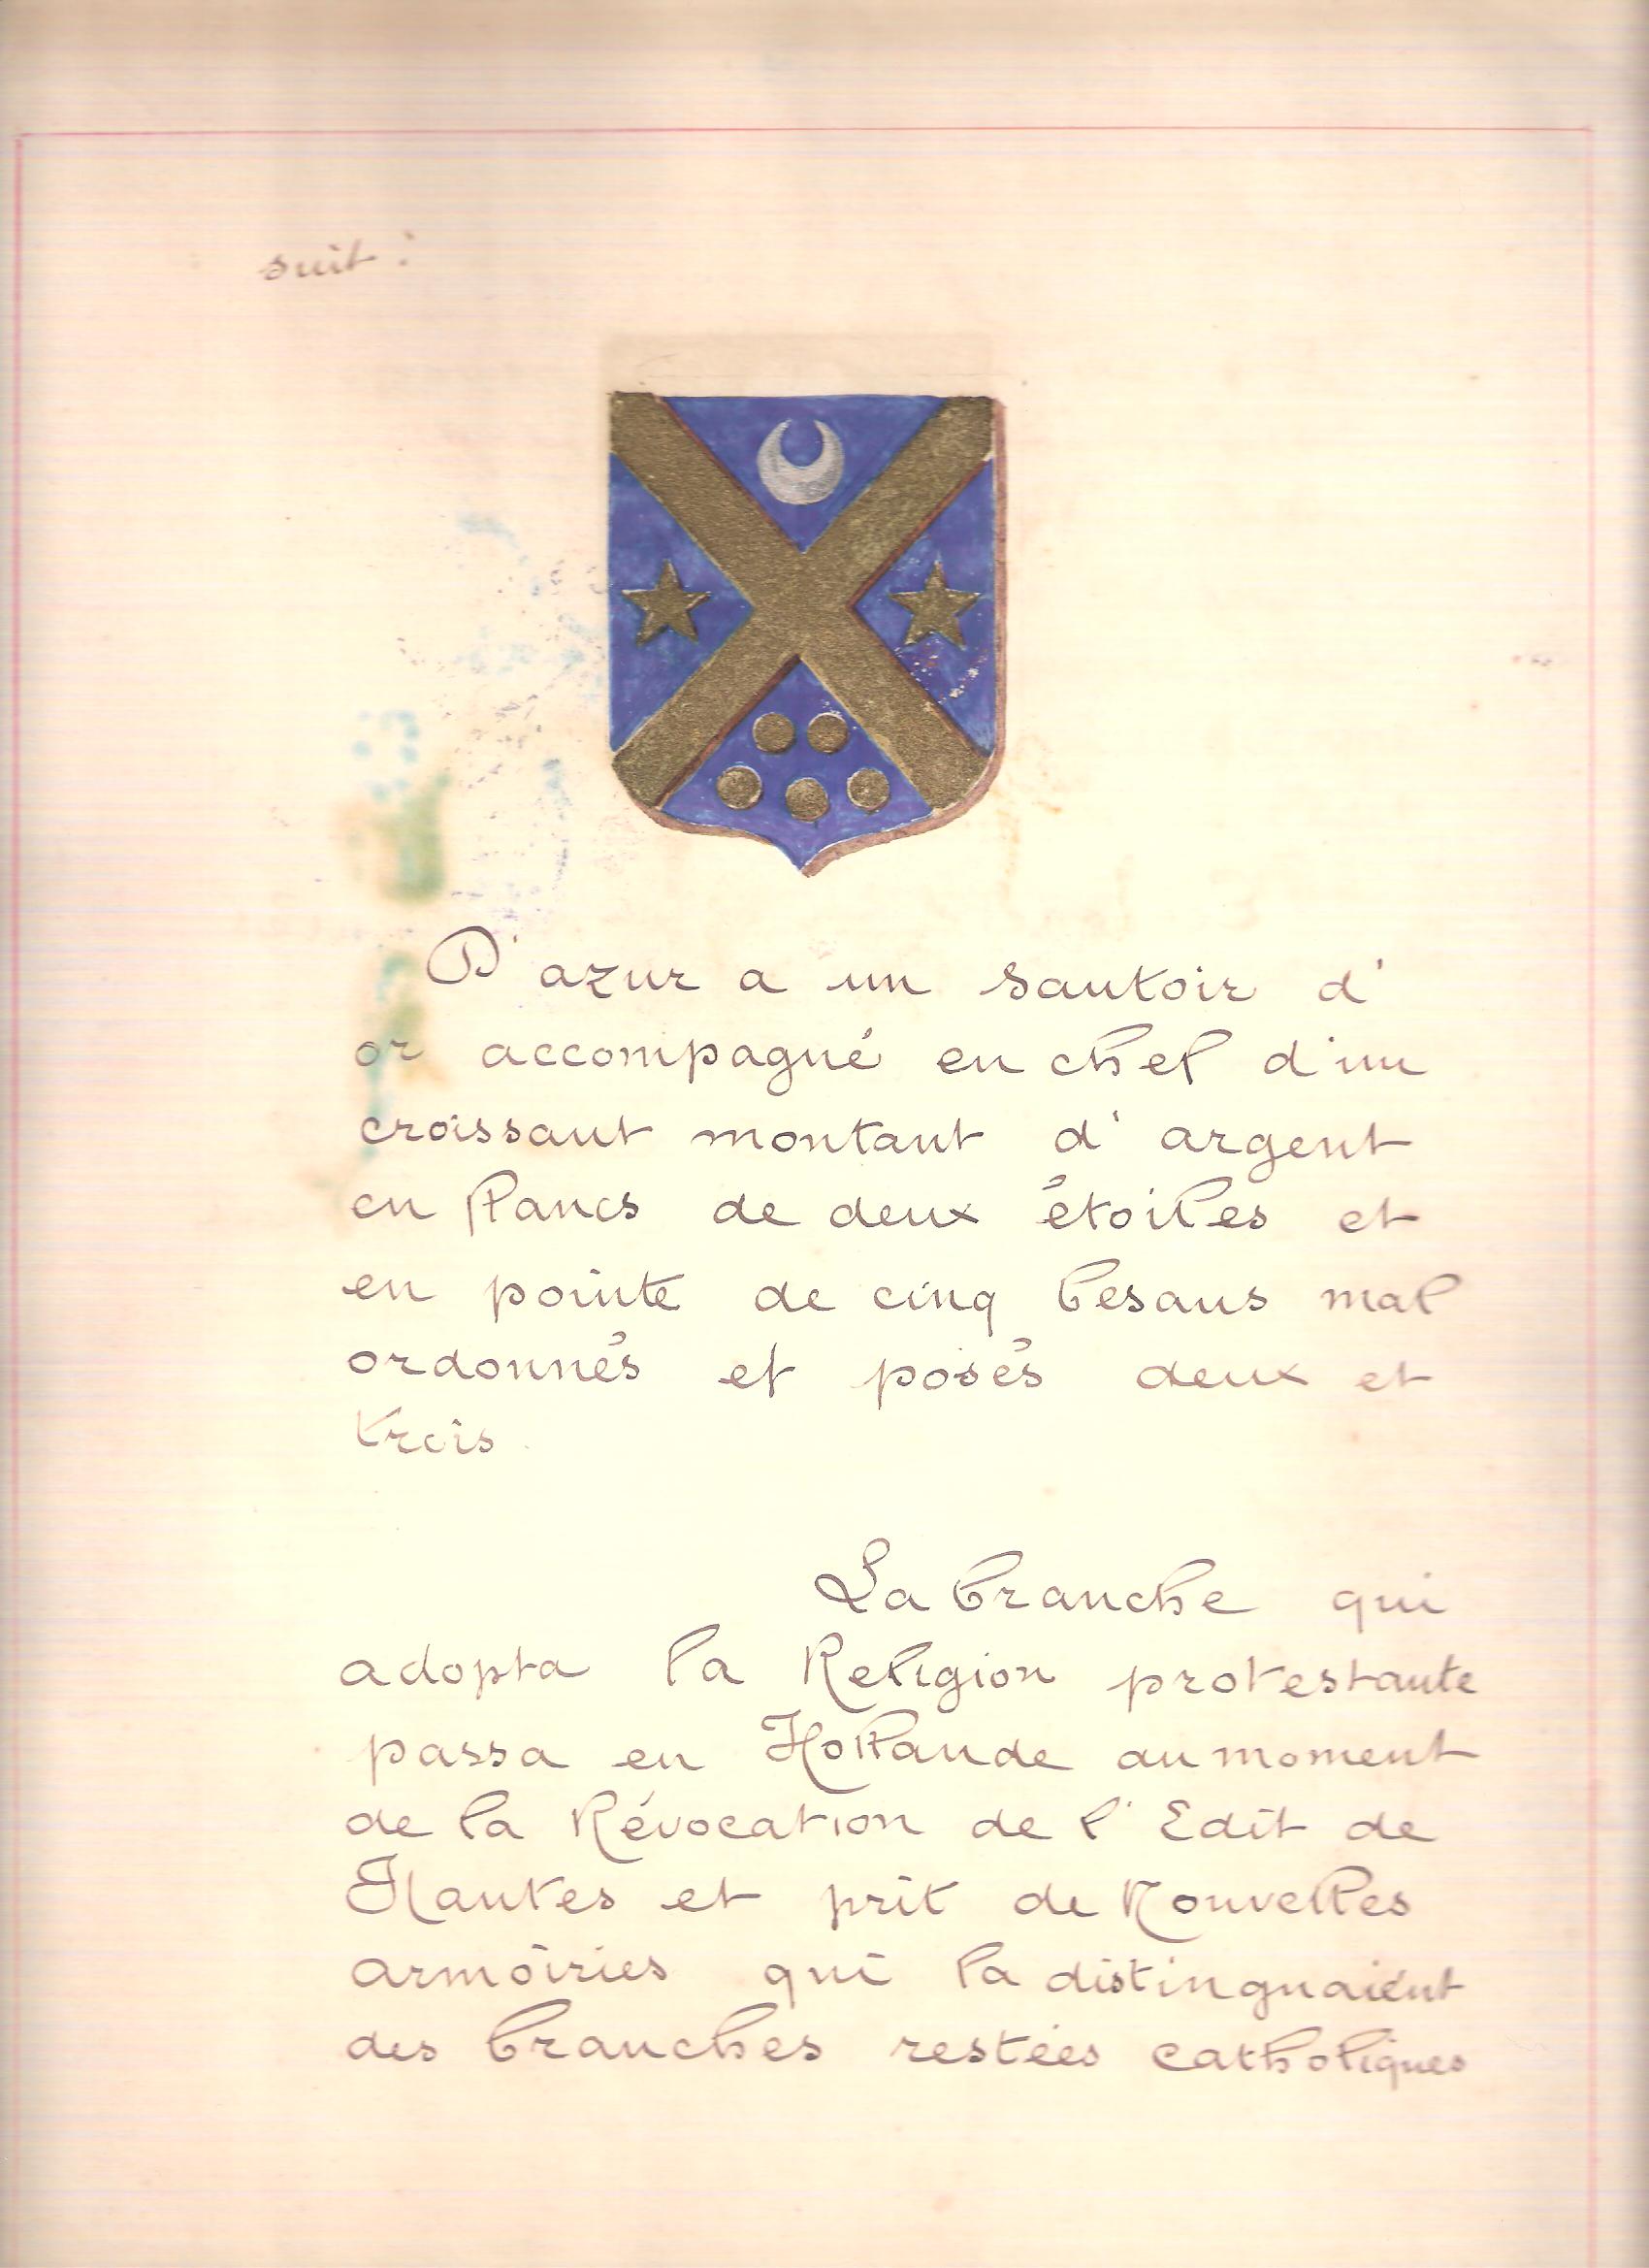 suit :
D'azur a un sautoir d'
or accompagné en chef d'un
croissant montant d'argent
en flancs de deux étoiles et
en pointe de cinq besans mal
ordonnés et posés deux et
trois.
La branche qui
adopta la Religion protestante
passa en Hollande au moment
de la Révocation de l'Edit de
Nantes et prit de Nouvelles
armoiries qui la distinguaient
des branches restées catholiques